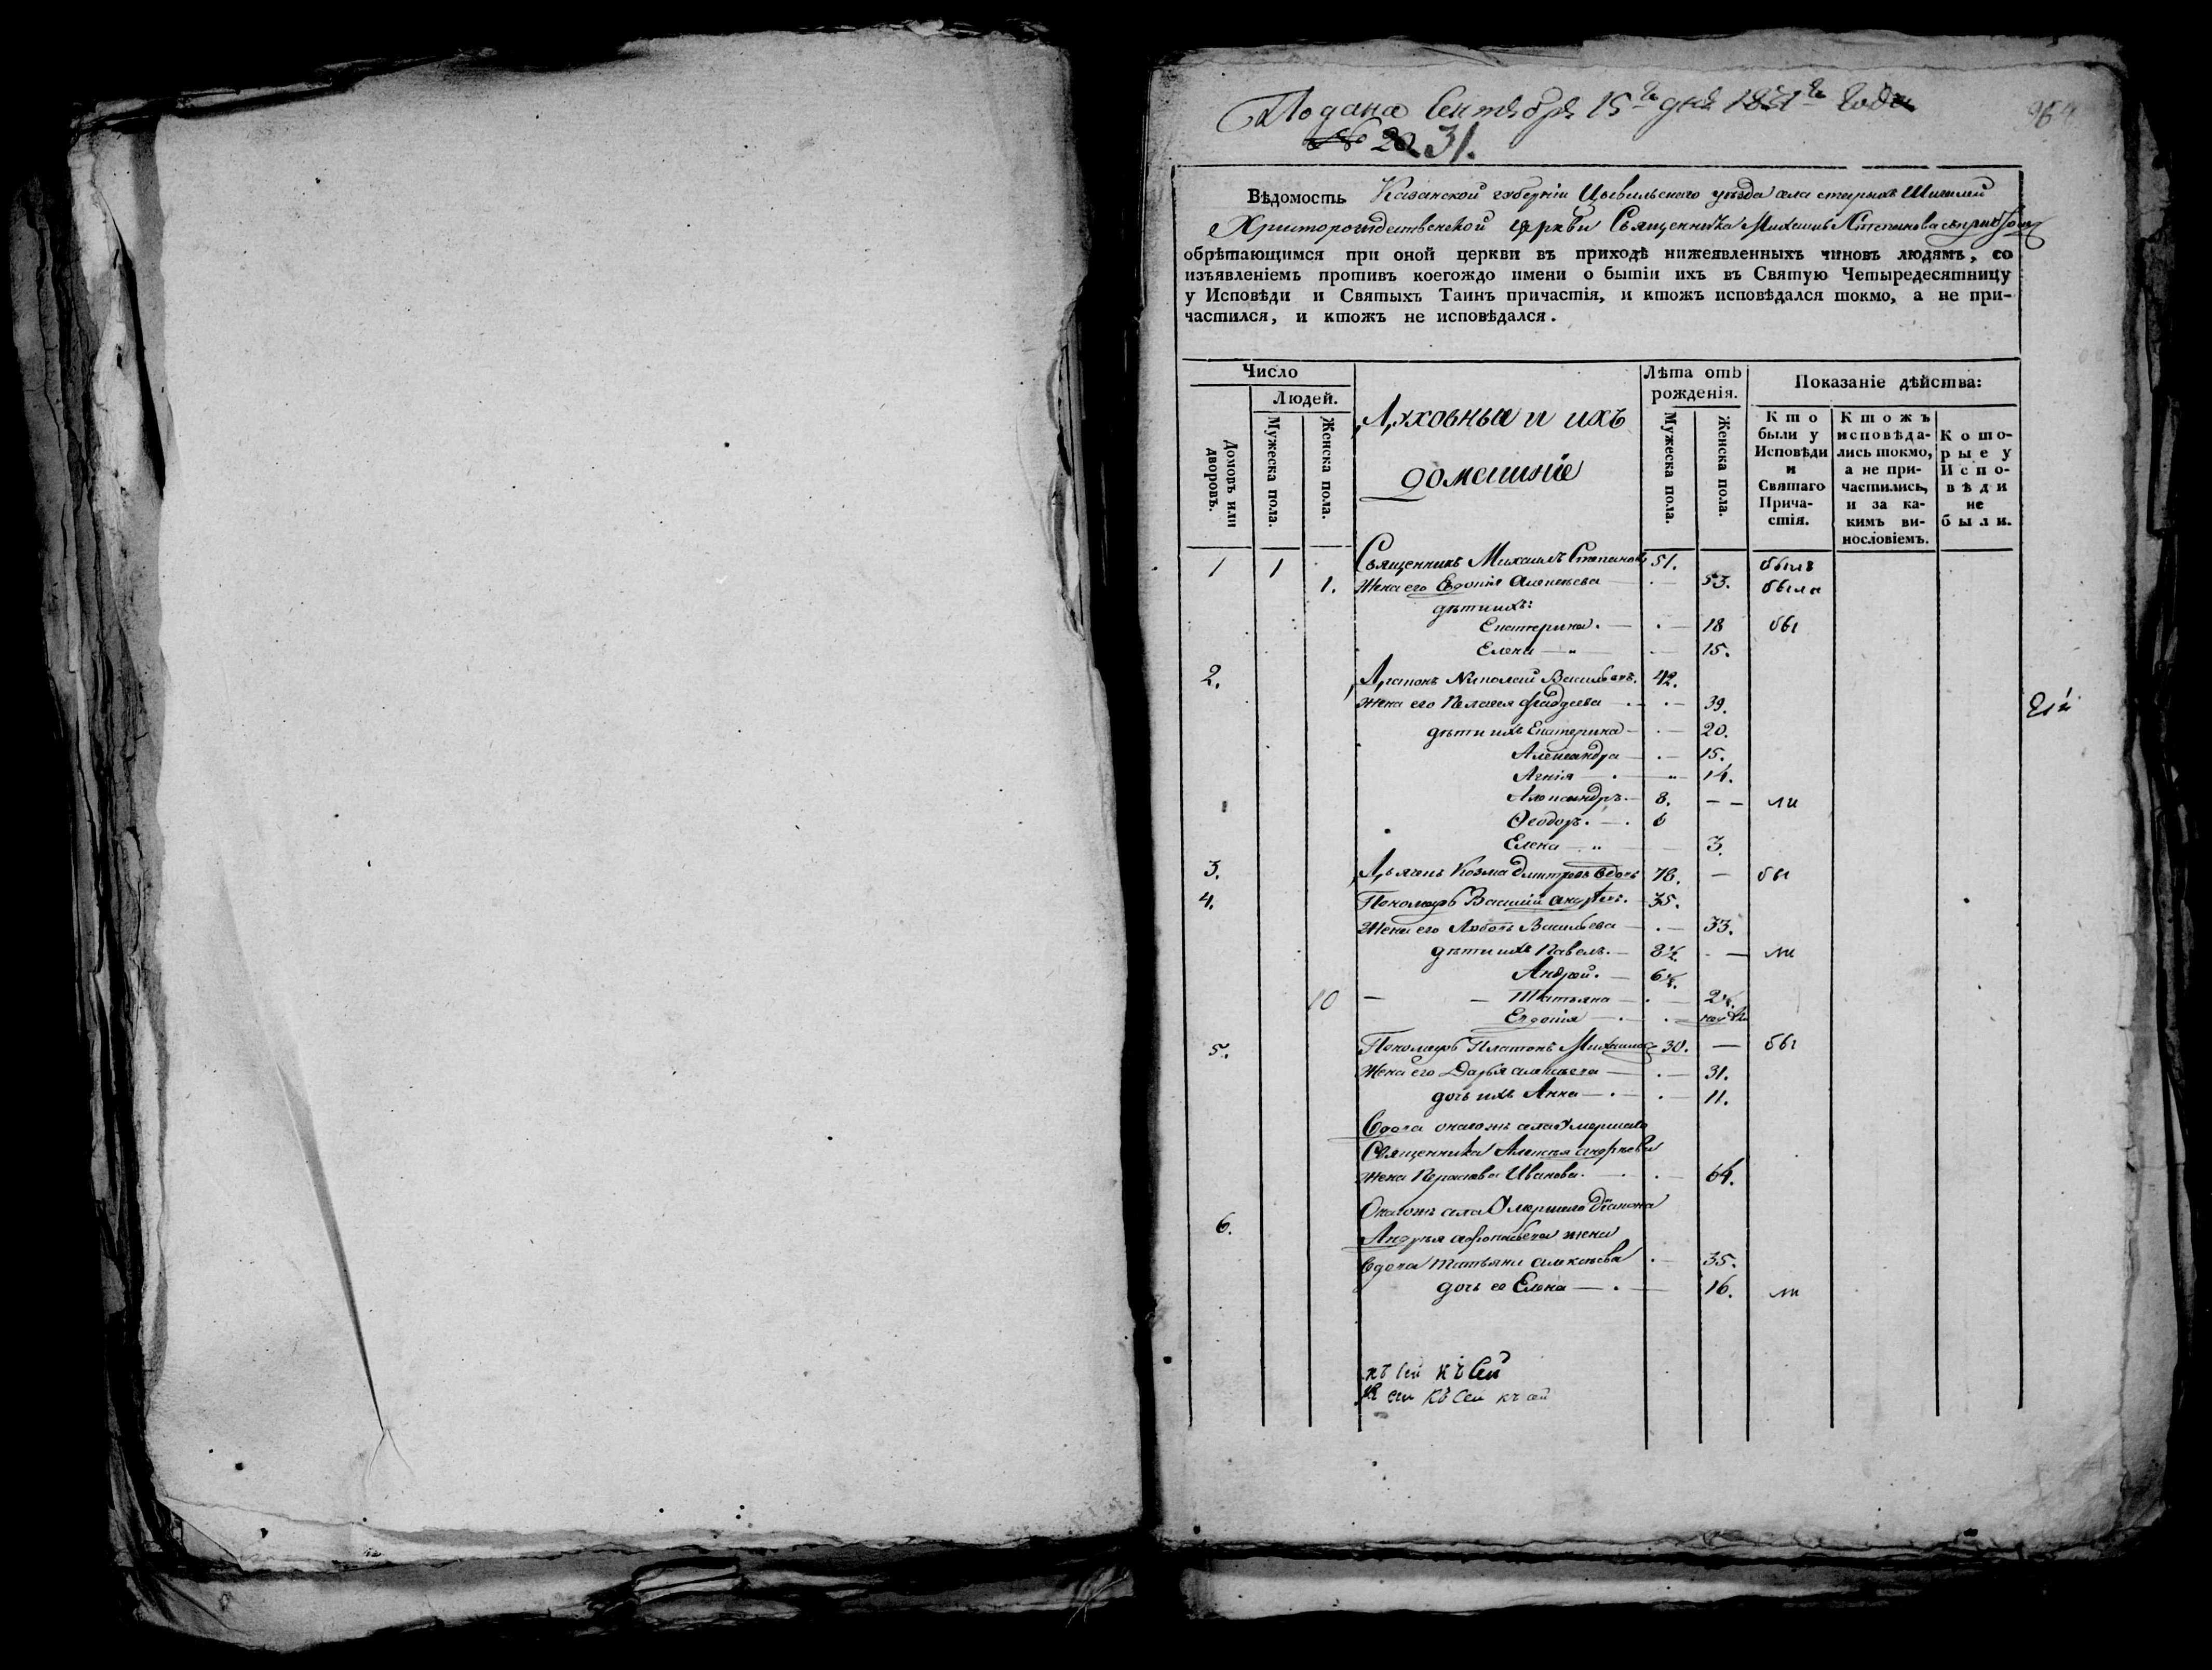 Подана Сентября 15го дня 1821го Года
№ 20 31.
964
Вѣдомость Казанской губерніи Цывильскаго уѣзда села старыхъ Шигалей
Христорождественской церкви Священника Михаила Степанова съ
обрѣтающимся при оной церкви въ приходѣ нижеявленныхъ чиновъ людямъ, со
изъявленіемъ противъ коегождо имени о бытіи ихъ въ Святую Четыредесятницу
у Исповѣди и Святыхъ Таинъ причастія, и ктожъ исповѣдался токмо, а не при-
частился, и ктожъ не исповѣдался.
Число
Домовъ или дворовъ.
Людей.
Мужеска пола.
Женска пола.
Духовныя и ихъ
домашніе
Лѣта отъ
рожденія.
Мужеска пола.
Женска пола.
Показаніе дѣйства:
Кто
были у
Исповѣди
и
Святаго
Прича-
стія.
Ктожъ
исповѣда-
лись токмо,
а не при-
частились,
и за ка-
кимъ ви-
нословіемъ.
Кото-
рые у
Испо-
вѣди
не
были.
1 1 Священникъ Михаилъ Степановъ 51. былъ
1. Жена его Евдокія Алексѣева 53. была
дѣти ихъ:
Екатерина. 18 бы
Елена 15.
2. Діаконъ Николай Васильевъ. 42.
Жена его Пелагея Фаддеева 39.
дѣти ихъ Екатерина 20.
Александра 15.
Агнія 14.
Александръ. 8. ли
Ѳеодоръ. 6
Елена 3.
3. Дьячекъ Козма Дмитревъ вдовъ 78. бы
4. Пономарь Василій Андреевъ. 35.
Жена его Любовь Васильева 33.
дѣти ихъ Павелъ. 8½ ли
Андрей. 6½.
10 Татьяна 2½.
Евдокія
5. Пономарь Платонъ Михайловъ 30. бы
Жена его Дарья Алексѣева 31.
дочь ихъ Анна 11.
Вдова онагожъ села Умершаго
Священника Алексѣя Андреева
жена Параскева Иванова. 64.
6. Онагожъ села Умершаго Діакона
Андрея Афонасьева жена
вдова Татьяна Алексѣева 35.
дочь ее Елена 16. ли
къ сей къ Сей
К сей Къ Сей къ сей